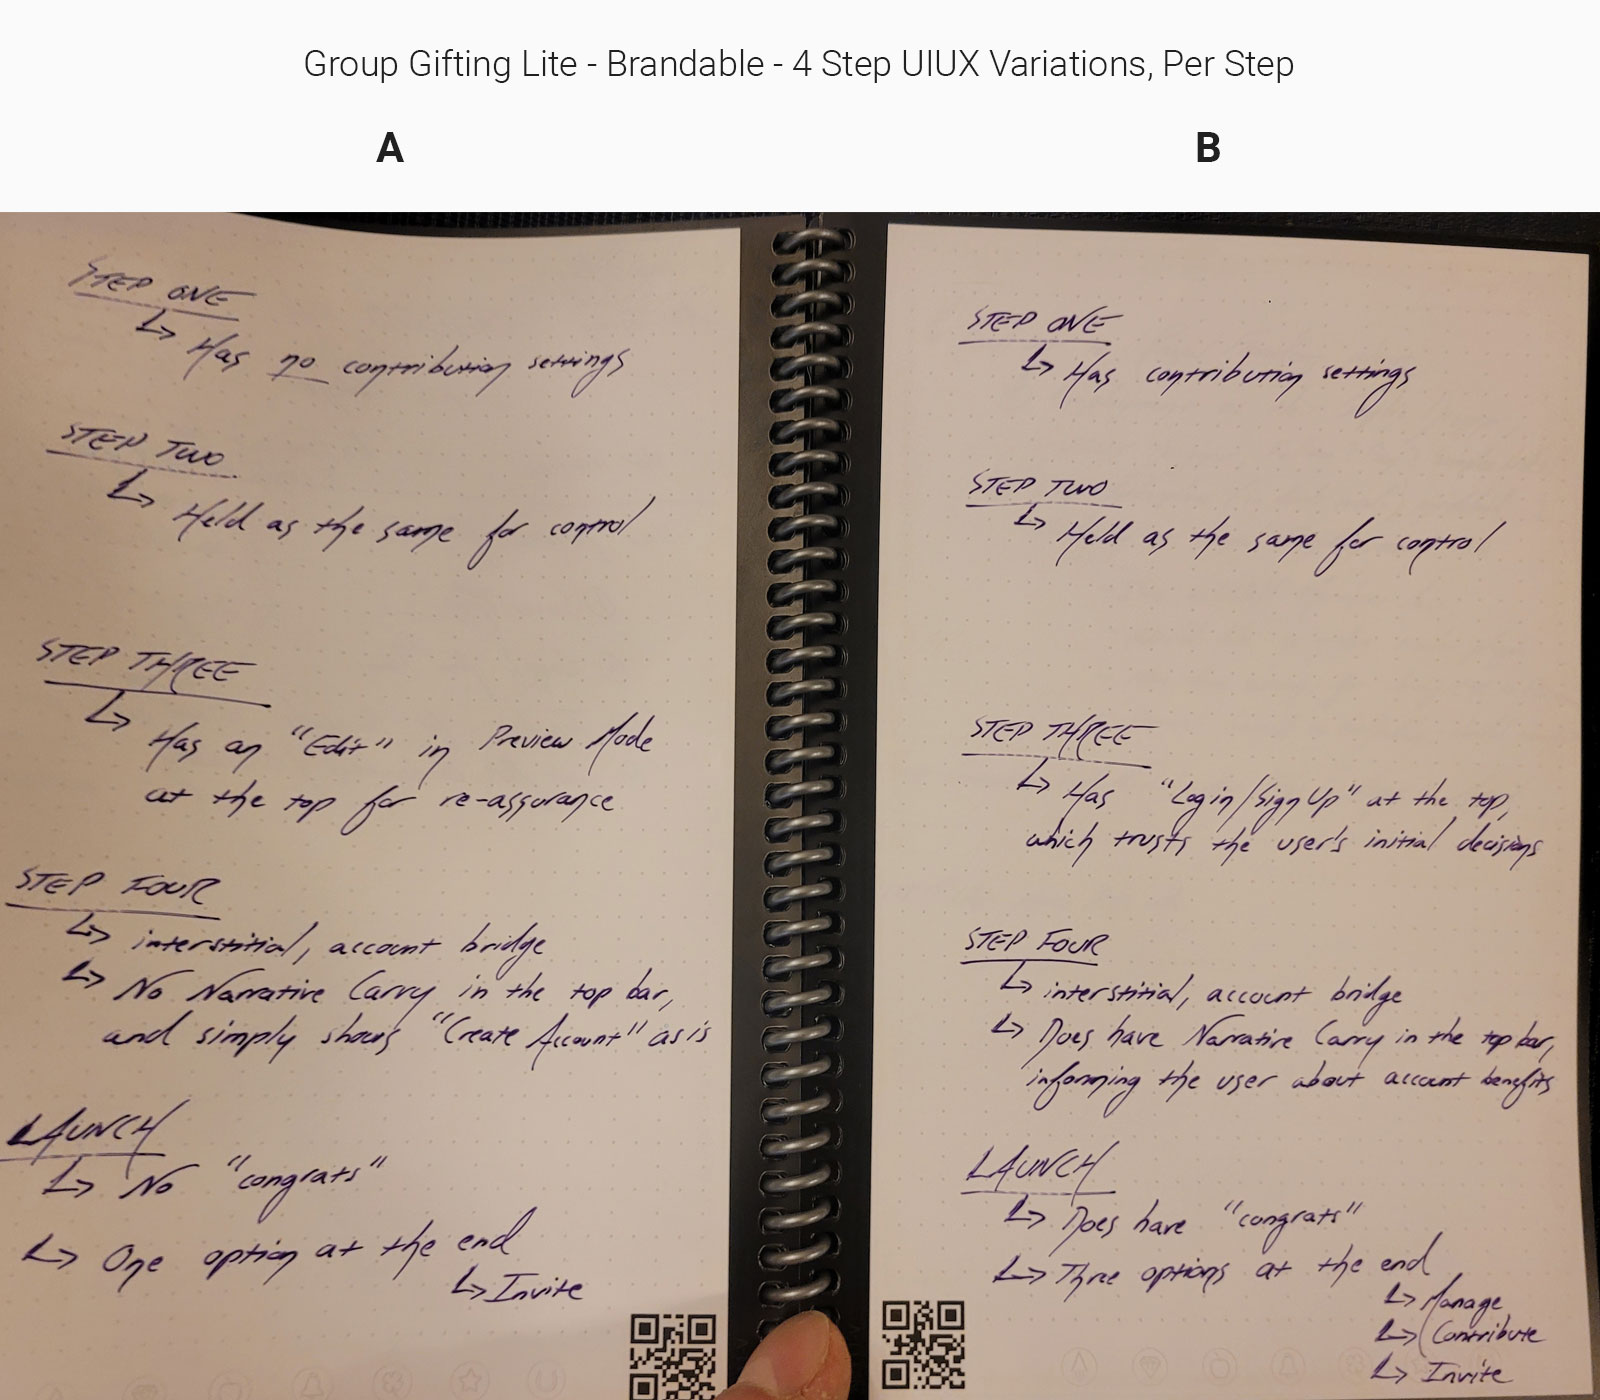 Group Gifting Lite - Brandable - 4 Step UIUX Variations, Per Step
A
STEP ONE
↳ Has no contribution settings
STEP TWO
↳ Held as the same for control
STEP THREE
↳ Has an "Edit" in Preview Mode
at the top for re-assurance
STEP FOUR
↳ interstitial, account bridge
↳ No Narrative Carry in the top bar,
and simply shows "Create Account" as is
LAUNCH
↳ No "congrats"
↳ One option at the end
↳ Invite
B
STEP ONE
↳ Has contribution settings
STEP TWO
↳ Held as the same for control
STEP THREE
↳ Has "Login/Sign Up" at the top,
which trusts the user's initial decisions
STEP FOUR
↳ interstitial, account bridge
↳ Does have Narrative Carry in the top bar,
informing the user about account benefits
LAUNCH
↳ Does have "congrats"
↳ Three options at the end
↳ Manage
↳ Contribute
↳ Invite